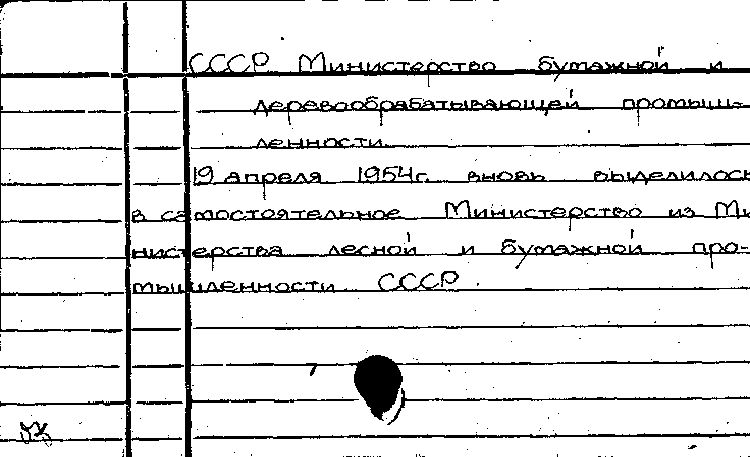 СССР Министерство бумажной и
деревообрабатывающей промыш-
ленности.
19 апреля 1954г. вновь выделилось
в самостоятельное Министерство из Ми
нистерства лесной и бумажной про-
мышленности СССР.